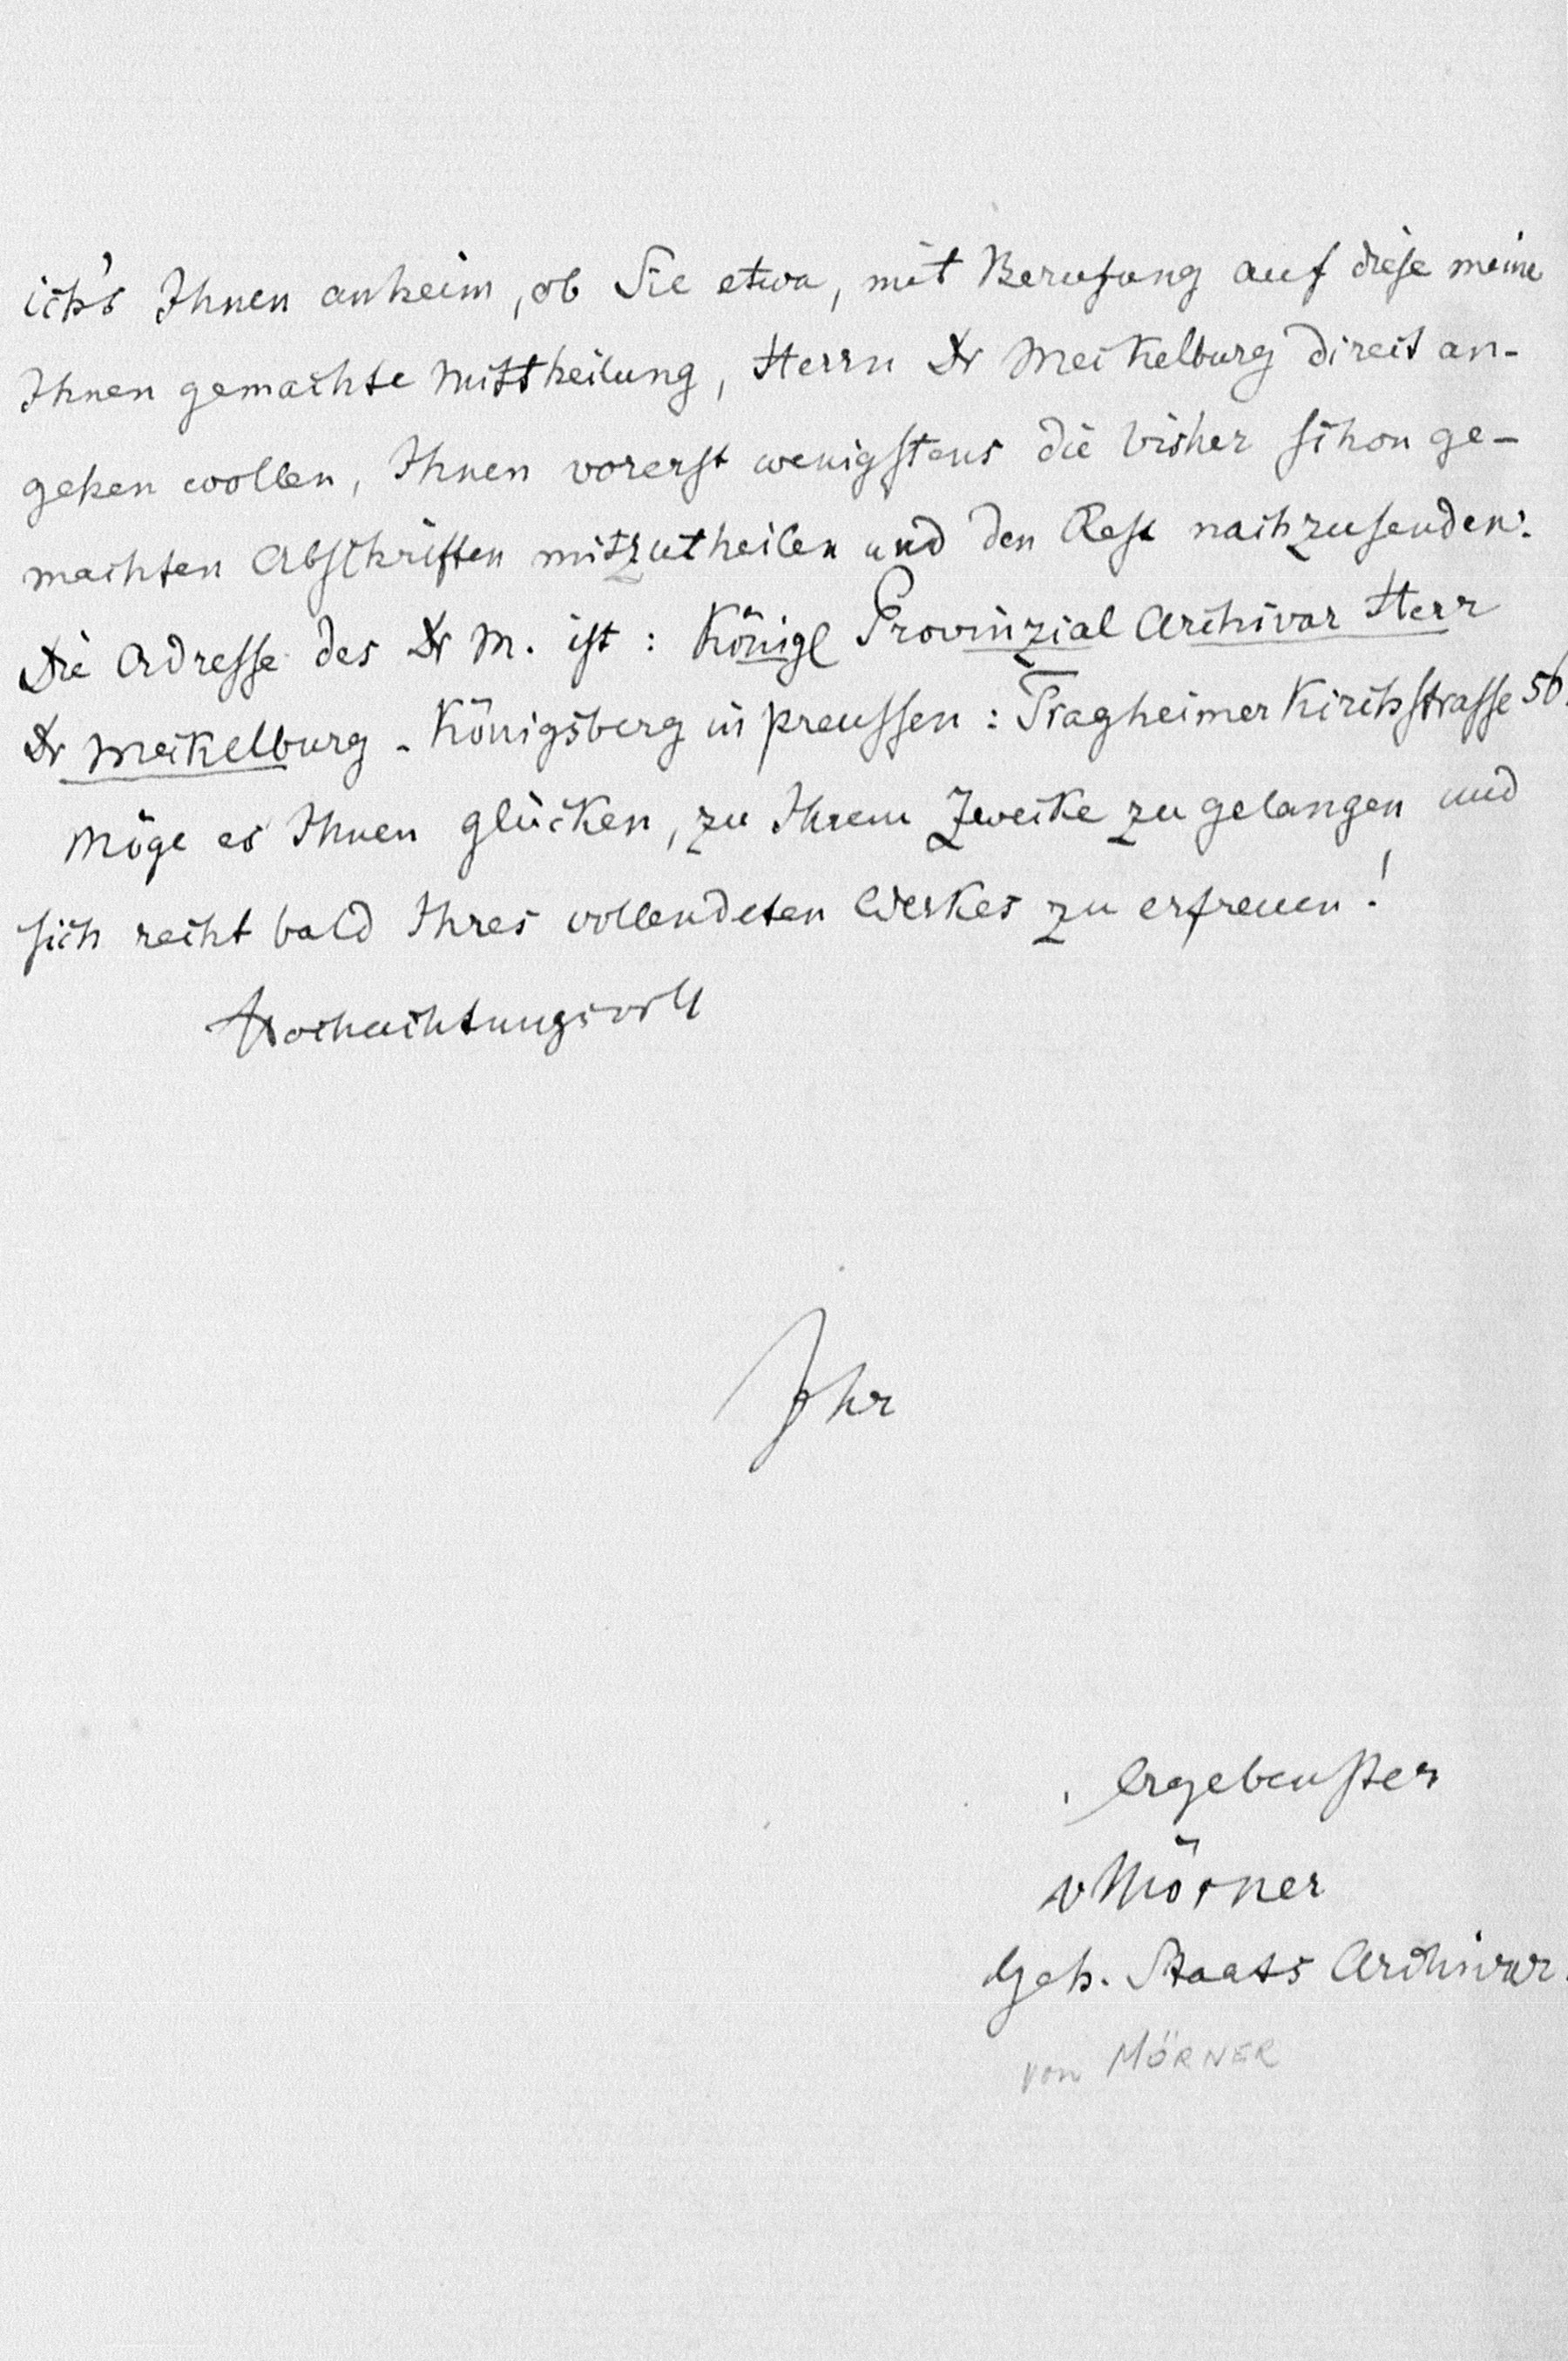 ich's Ihnen anheim, ob Sie etwa, mit Berufung auf diese meine
Ihnen gemachte Mittheilung, Herrn Dr Meckelburg direct an-
gehen wollen, Ihnen vorerst wenigstens die bisher schon ge-
machten Abschriften mitzutheilen und den Rest nachzusenden.
Die Adresse des Dr M. ist: Königl Provinzial Archivar Herr
Dr Meckelburg - Königsberg in Preussen: Tragheimer Kirchstrasse 56.
Möge es Ihnen glücken, zu Ihrem Zwecke zu gelangen und
sich recht bald Ihres vollendeten Werkes zu erfreuen!
Hochachtungsvoll
Ihr
ergebenster
v Mörner
Geh. Staats Archivar.
von MÖRNER